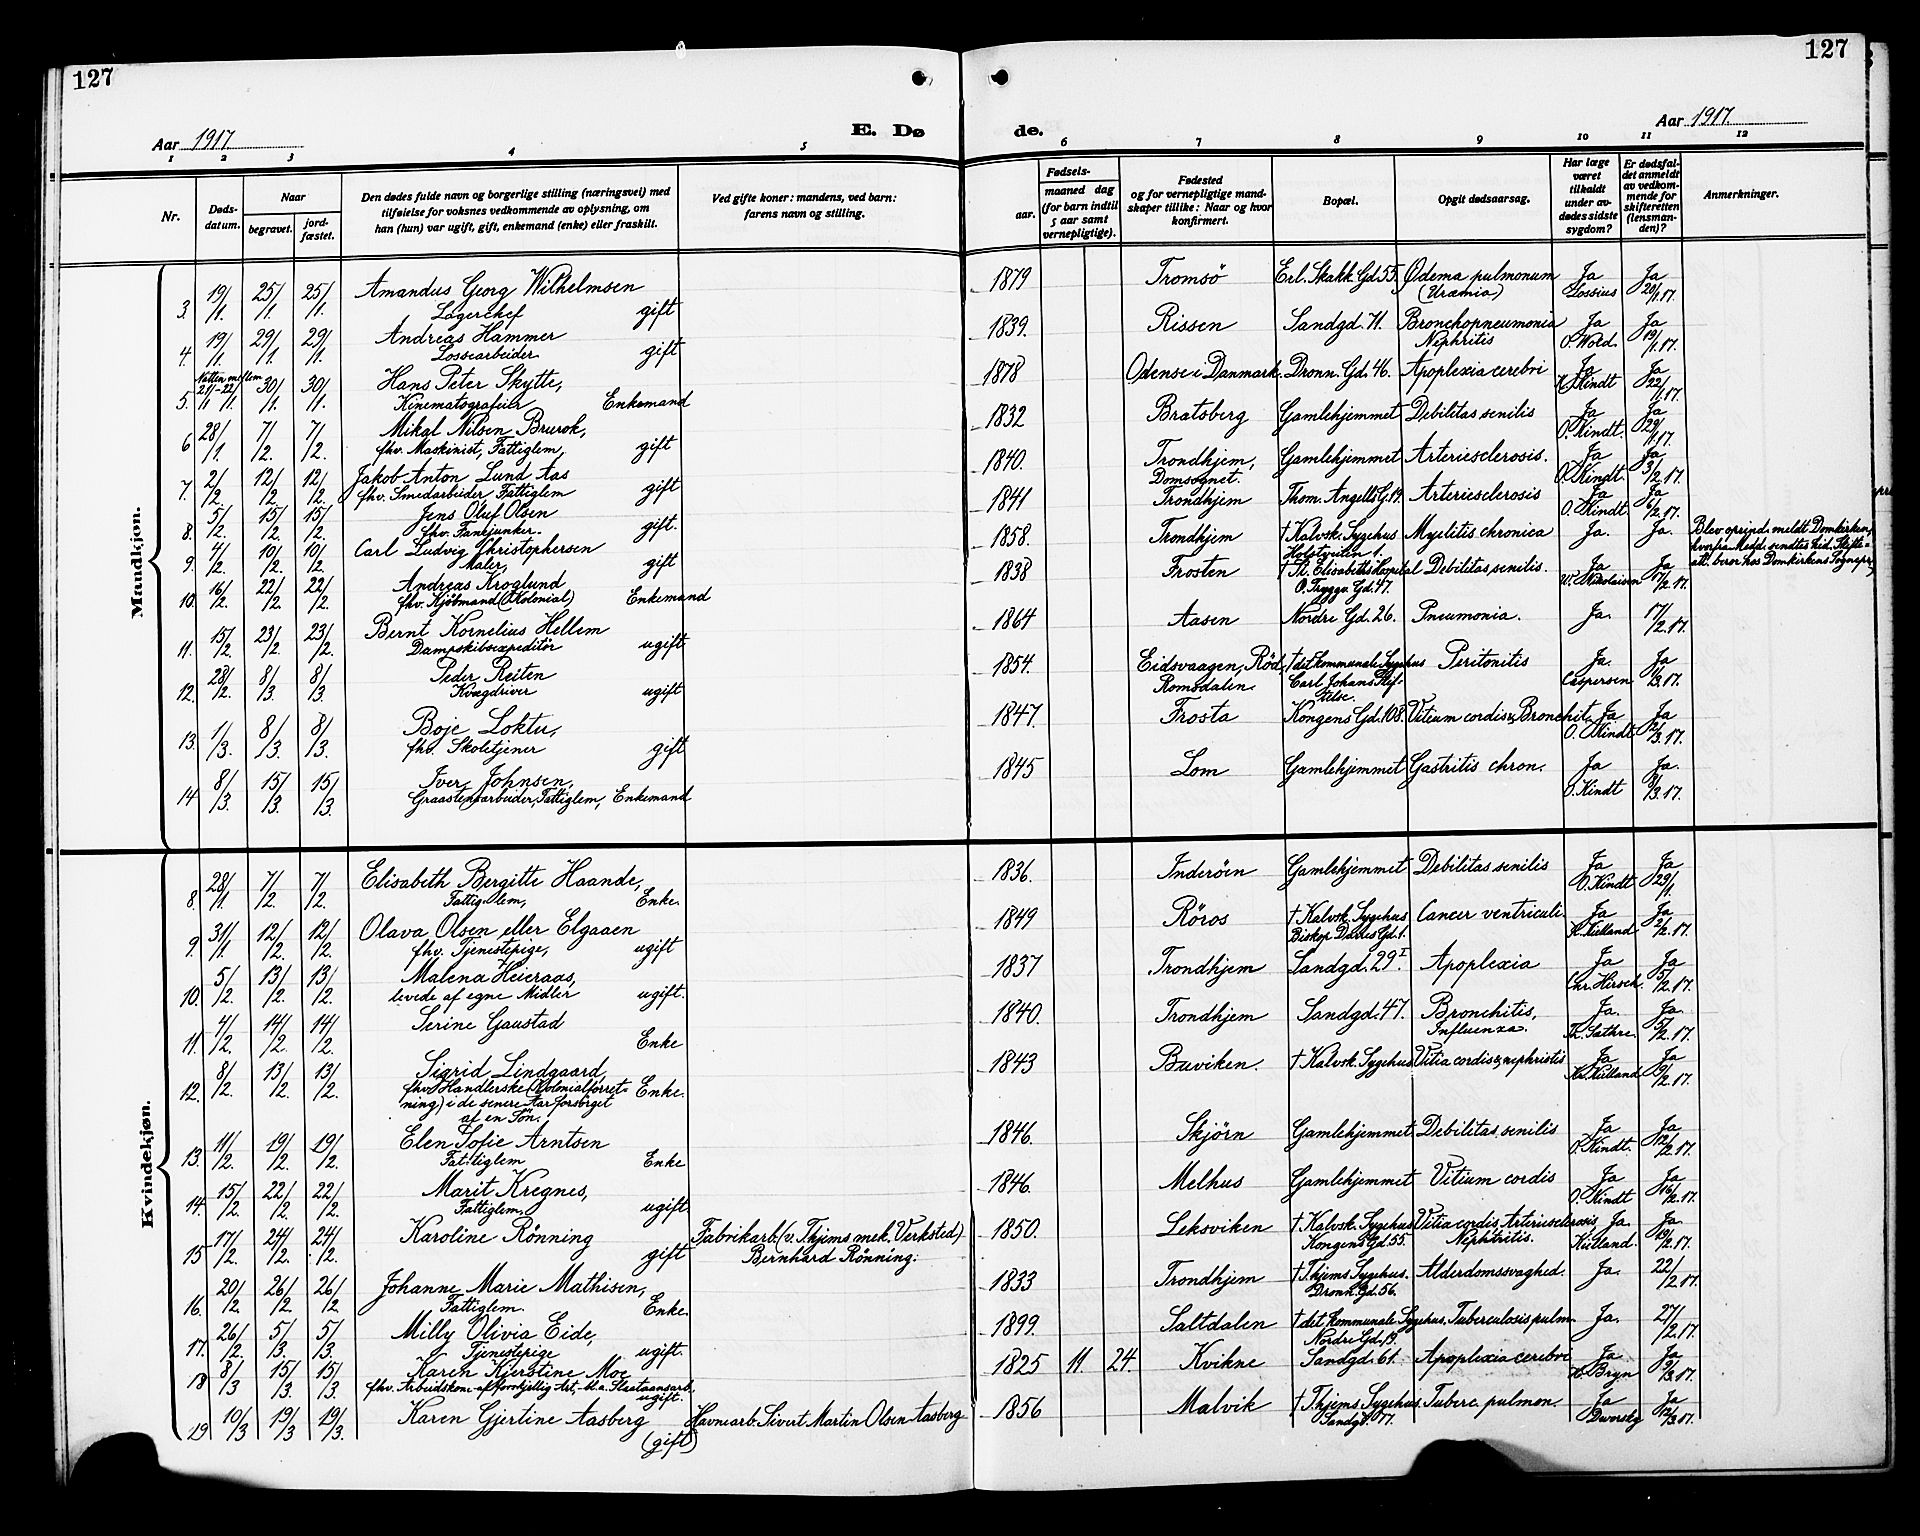 127
127
Aar 1917
E. Dø
de.
Aar 1917.
1 2 3 4 5 6 7 8 9 10 11 12
Nr.
Dødsdatum.
Naar
begravet.
jordfæstet.
Den dødes fulde navn og borgerlige stilling (næringsvei) med
tilføielse for voksnes vedkommende av oplysning, om
han (hun) var ugift, gift, enkemand (enke) eller fraskilt.
Ved gifte koner: mandens, ved barn:
farens navn og stilling.
Fødsels-
aar.
maaned dag
(for barn indtil
5 aar samt
vernepligtige).
Fødested
og for vernepligtige mand-
skaper tillike: Naar og hvor
konfirmert.
Bopæl.
Opgit dødsaarsag.
Har læge
været
tilkaldt
under av-
dødes sidste
sygdom?
Er dødsfal-
det anmeldt
av vedkom-
mende for
skifteretten
(lensman-
den)?
Anmerkninger.
Mandkjøn.
3 19/1. 25/1. 25/1. Amandus Georg Wilhelmsen 1879 Tromsö Erl. Skakk. Gd. 55. Odema pulmonum Ja Ja
Lagerchef gift (Uræmia) Lossius 20/1.17.
4. 19/1. 29/1. 29/1. Andreas Hammer 1839. Rissen Sandgd. 71. Bronchopneumonia Ja Ja
Lossearbeider gift Nephritis O. Wold. 19/1.17.
5. Natten mellem 21/1-22/1. 30/1. 30/1. Hans Peter Skytte, 1878 Odense i Danmark. Dronn. Gd. 46. Apoplexia cerebri Ja Ja
Kinematografeier Enkemand Kindt 22/1.17.
6 28/1. 7/2. 7/2. Mikal Nilsen Brurok, 1832 Bratsberg Gamlehjemmet Debilitas senilis Ja Ja
fhv. Maskinist, Fattiglem, gift O. Kindt. 29/1.17.
7. 2/2. 12/2. 12/2. Jakob Anton Lund Aas 1840. Trondhjem, Gamlehjemmet Arteriesclerosis. Ja Ja
fhv. Smedarbeider Fattiglem gift Domsognet. O. Kindt. 3/2.17.
8. 5/2. 15/2. 15/2. Jens Oluf Olsen 1841 Trondhjem Thom. Angells G. 19. Arteriesclerosis Ja Ja
fhv. Fanejunker. gift. O. Kindt. 6/2.17.
9. 4/2. 10/2. 10/2. Carl Ludvig Christophersen 1858. Trondhjem † Kalvsk. Sygehus Myelitis chronica Ja. Ja. Blev oprind. meldt Domkirken,
Maler, gift Holstveiten 1. hvorfra Medd. sendtes hid. Skifte-
att. beror hos Domkirkens Sognepr.
10. 16/2. 22/2. 22/2. Andreas Kroglund 1838 Frosten † St. Elisabeths Hospital Debilitas senilis. Ja Ja
fhv. Kjöbmand (Kolonial) Enkemand O. Tryggv. Gd. 47. W. Nikolaisen 17/2.17.
11. 15/2. 23/2. 23/2. Bernt Kornelius Hellem 1864 Aasen Nordre Gd. 26. Pneumonia. Ja. 17/2.17.
Dampskibsexpeditör ugift
12. 28/2. 8/3. 8/3 Peder Reiten 1854. Eidsvaagen, Röd, † det kommunale Sygehus Peritonitis Ja. Ja
Kvægdriver ugift Romsdalen. Carl Johans Stif- Caspersen /3.17.
telse.
13. 1/3. 8/3. 8/3. Boje Loktu, 1847. Frosta Kongens Gd. 108. Vitium cordis & Bronchit. Ja Ja
fhv. Skoletjener gift O. Kindt 2/3.17.
14 8/3. 15/3 15/3. Iver Johnsen, 1845 Lom Gamlehjemmet Gastritis chron. Ja Ja.
Graastensarbeider, Fattiglem, Enkemand O. Kindt 8/3.17.
Kvindekjøn.
8. 28/1 7/2. 7/2. Elisabeth Bergitte Haande, 1836. Inderöen Gamlehjemmet Debilitas senilis Ja Ja
Fattiglem, Enke. O. Kindt 29/1.
9. 31/1 12/2. 12/2. Olava Olsen eller Elgaaen 1849 Röros † Kalvsk. Sygehus Cancer ventriculi. Ja Ja
fhv. Tjenestepige, ugift Biskop Darres Gd. 1. K. Kielland 2/2.17.
10. 5/2. 13/2. 13/2. Malena Heieraas, 1837 Trondhjem Sandgd. 29 I Apoplexia Ja Ja
levede af egne Midler ugift. Chr. Hirsch. 5/2.17.
11. 4/2. 14/2. 14/2. Serine Gaustad 1840. Trondhjem Sandgd. 47. Bronchitis, Ja. Ja
Enke Influenza. Th. Sathre. 5/2.17.
12. 8/2. 13/2. 13/2. Sigrid Lindgaard, 1843 Buviken. † Kalvsk. Sygehus Vitia cordis & nephritis Ja Ja
fhv. Handlerske (Kolonialforret- Enke. K. Kielland 9/2.17.
ning) i de senere Aar forsörget
af en Sön.
13. 11/2. 19/2. 19/2. Elen Sofie Arntsen 1846. Skjörn Gamlehjemmet Debilitas senilis Ja Ja
Fattiglem Enke O. Kindt. 12/2.17.
14. 15/2. 22/2. 22/2. Marit Kregnes, 1846. Melhus Gamlehjemmet Vitium cordis Ja Ja
Fattiglem, ugift. O. Kindt 16/2.17.
15 17/2. 24/2. 24/2. Karoline Rönning Fabrikarb. (v. Thjems mek. Verksted) 1850. Leksviken † Kalvsk. Sygehus Vitia cordis, Arteriesclerosis, Ja. Ja
gift Bernhard Rönning. Kongens Gd. 55. Nephritis. Kielland. 19/2.17.
16. 20/2. 26/2. 26/2. Johanne Marie Mathisen, 1833 Trondhjem † Thjems Sygehus. Alderdomssvaghed. Ja. 22/2.17.
Fattiglem. Enke. Dronn. Gd. 56.
17. 26/2 5/3. 5/3. Milly Olivia Eide, 1899. Saltdalen † det kommunale Sygehus. Tuberculosis pulm. Ja. 27/2.17.
Tjenestepige ugift. Nordre Gd. 13.
18 8/3 15/3. 15/3. Karen Kjerstine Moe 1825 11 24. Kvikne Sandgd. 61. Apoplexia cerebri Ja Ja
fhv. Arbeidskone af forskjellig Art, bl. a. Slaataansarb. ugift. K. Bryn 9/3.17.
19 10/3 19/3 19/3. Karen Gjertine Aasberg Havnearb. Sivert Martin Olsen Aasberg 1856 Malvik † Thjems Sygehus Tuberc. pulmon. Ja Ja
(gift) Sandgd. 77. Dworsky 12/3.17.